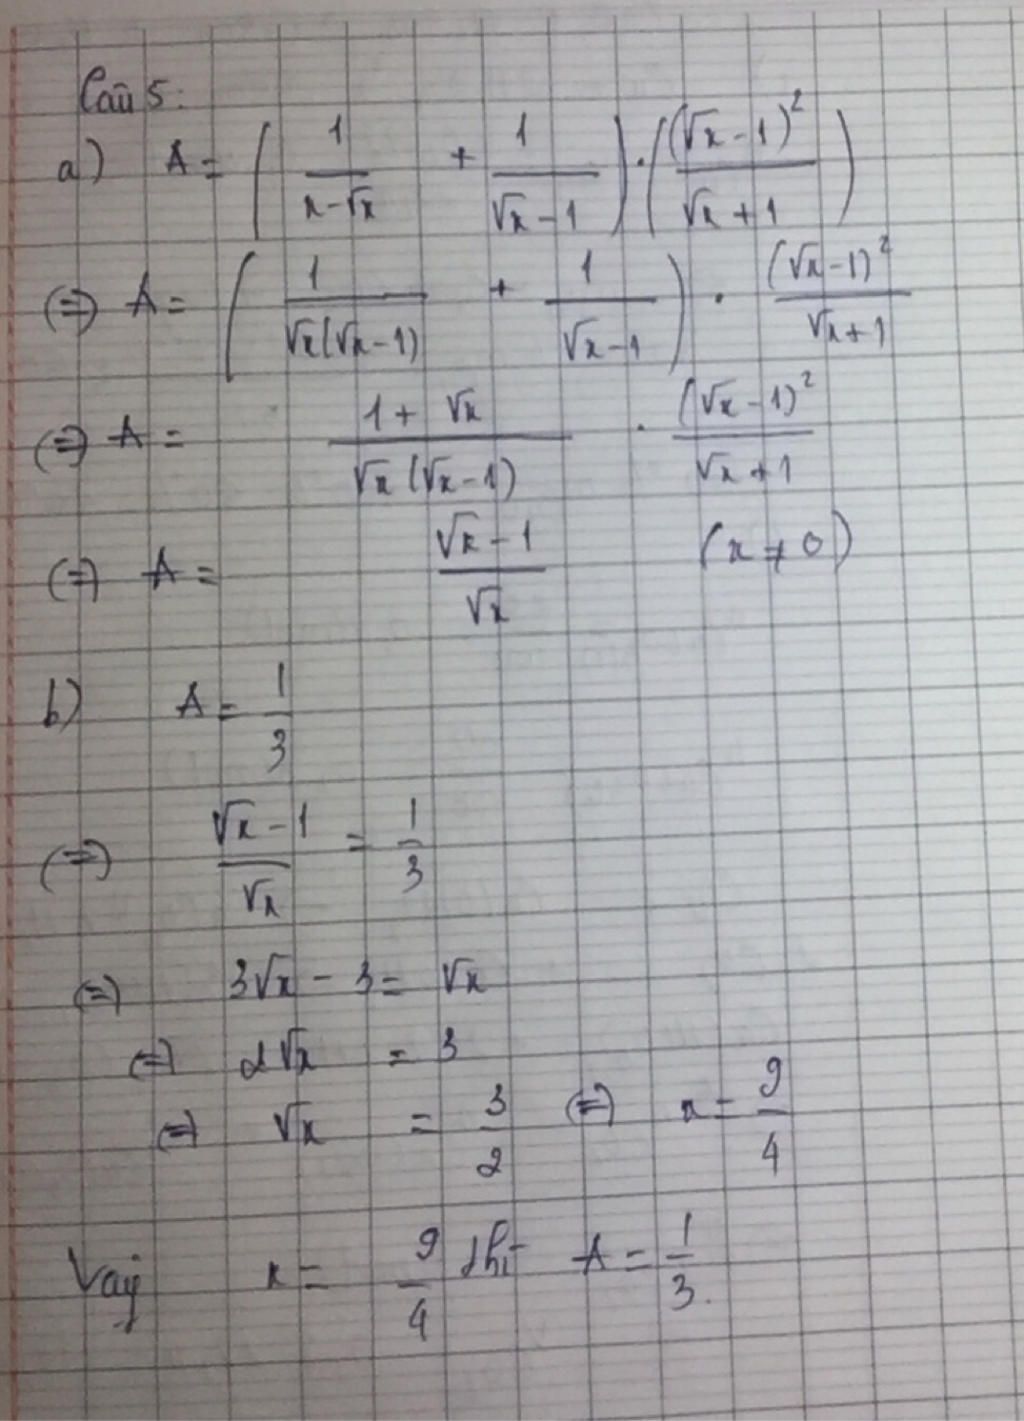 Câu 5:
a) A = ( 1/(x-√x) + 1/(√x-1) ) . ( (√x-1)²/(√x+1) )
(=) A = ( 1/(√x(√x-1)) + 1/(√x-1) ) . (√x-1)²/(√x+1)
(=) A = (1+√x)/(√x(√x-1)) . (√x-1)²/(√x+1)
(=) A = (√x-1)/√x (x ≠ 0)
b) A = 1/3
(=) (√x-1)/√x = 1/3
(=) 3√x - 3 = √x
(=) 2√x = 3
(=) √x = 3/2 (=) x = 9/4
Vậy x = 9/4 thì A = 1/3.